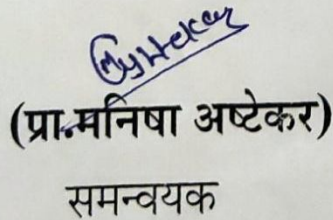 (प्रा.मनिषा अष्टेकर)
समन्वयक